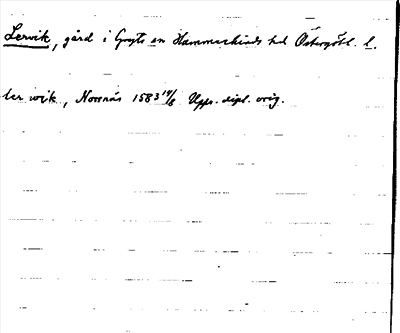 Lervik, gård i Gryts sn Hammarkinds hd Östergötl. l.
ler wik, Norrnäs 1583 14/8 Upps. dipl. orig.